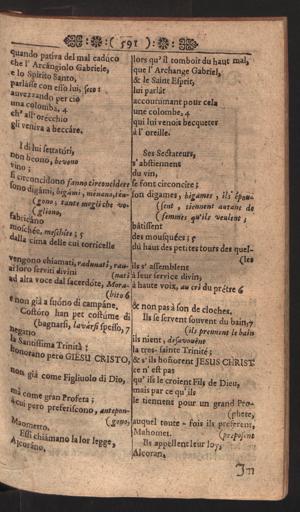 ( 591 )
quando pativa del mal caduco
che l' Arcangiolo Gabriele,
e lo Spirito Santo,
parlasse con esso lui, seco:
avvezzando per ciò
una colomba, 4
ch' all' orecchio
gli veniva a beccare.
I di lui settatóri,
non béono, bevono
vino;
si circoncidono fanno circoncidere
sono digámi, bigami, ménano, ten-
(gono, tante mogli che vo-
gliono,
fabbricano
moschée, meschite; 5
dalla cima delle cui torricelle
vengono chiamati, radunati, rau-
(nati
ai loro servíti divini
ad alta voce dal sacerdote, Mora-
(bito 6
e non già a suóno di campáne.
Costóro han pet costúme di
(bagnarsi, lavarsi spesso, 7
negano
la Santissima Trinità;
honorano però GIESU CRISTO,
non già come Figliuolo di Dio,
mà come gran Profeta;
à cui però preferiscono, antepon-
(gono,
Maometto.
Essi chiámano la lor legge,
Alcoráno,
lors qu' il tomboit du haut mal,
que l' Archange Gabriel,
& le Saint Esprit,
lui parlât
accoutumant pour cela
une colombe, 4
qui lui venoit becqueter
à l' oreille.
Ses Sectateurs,
s' abstiennent
du vin,
se font circoncire;
son digames, bigames, ils' épou-
(sent, tiennent autant de
(femmes qu'ils veulent;
bâtissent
des mousquées; 5
du haut des petites tours des quel-
(les
ils s' assemblent
à leur service divin,
à haute voix, au cri du prétre 6
& non pas à son de cloches.
Ils se servent souvent du bain, 7
(ils prennent le bain
ils nient, desavouënt
la tres-sainte Trinité;
& s' ils honorent JESUS CHRIST
ce n' est pas
qu' ils le croient Fils de Dieu,
mais par ce qu'ils
le tiennent pour un grand Pro-
(phete,
auquel toute-fois ils préferent,
(preposent
Mahomet.
Ils appellent leur loy,
Alcoran,
Im